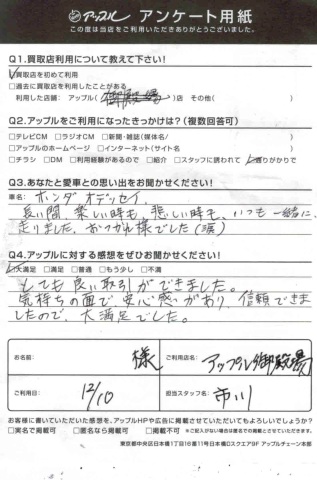 アップル アンケート用紙
この度は当店をご利用いただきありがとうございました。
Q1.買取店利用について教えて下さい！
☑買取店を初めて利用
□過去に買取店を利用したことがある
利用した店舗： アップル（御殿場）店 その他（ ）
Q2.アップルをご利用になったきっかけは？（複数回答可）
□テレビCM □ラジオCM □新聞・雑誌（媒体名/ ）
□アップルのホームページ □インターネット（サイト名 ）
□チラシ □DM □利用経験があるので □紹介 □スタッフに誘われて ☑通りがかりで
Q3.あなたと愛車との思い出をお聞かせください！
車名： ホンダ オデッセイ
長い間、楽しい時も、悲しい時も、いつも一緒に
走りました。おつかれ様でした（涙）
Q4.アップルに対する感想をぜひお聞かせください！
☑大満足 □満足 □普通 □もう少し □不満
とても良い取引ができました。
気持ちの面で、安心感があり、信頼できま
したので、大満足でした。
お名前： 様
ご利用店名： アップル御殿場
ご利用日： 12/10
担当スタッフ名： 市川
お客様に書いていただいた感想を、アップルHPや広告に掲載させていただいてもよろしいでしょうか？
□実名で掲載可 □匿名なら掲載可 □掲載不可 ※ご記入がない場合は匿名での掲載とさせていただきます。
東京都中央区日本橋1丁目16番11号日本橋Dスクエア9F アップルチェーン本部